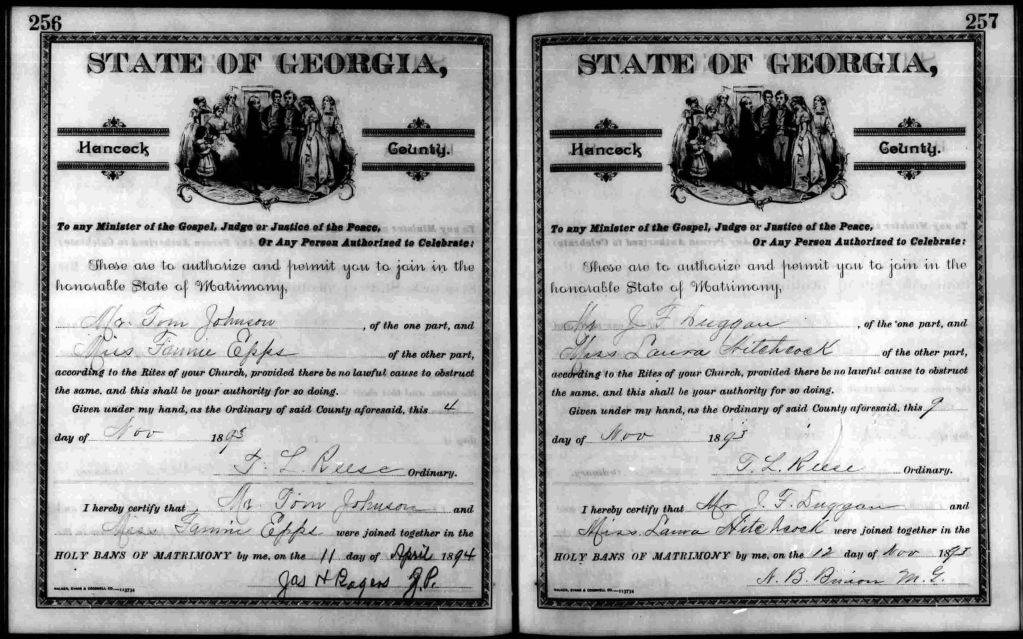 256
STATE OF GEORGIA,
Hancock County.
To any Minister of the Gospel, Judge or Justice of the Peace,
Or Any Person Authorized to Celebrate:
These are to authorize and permit you to join in the
honorable State of Matrimony,
Mr. Tom Johnson, of the one part, and
Miss Fannie Epps of the other part,
according to the Rites of your Church, provided there be no lawful cause to obstruct
the same, and this shall be your authority for so doing.
Given under my hand, as the Ordinary of said County aforesaid, this 4
day of Nov 1893
T. L. Reese Ordinary.
I hereby certify that Mr. Tom Johnson and
Miss Fannie Epps were joined together in the
HOLY BANS OF MATRIMONY by me, on the 11 day of April 1894
Jas H Rogers J.P.
257
STATE OF GEORGIA,
Hancock County.
To any Minister of the Gospel, Judge or Justice of the Peace,
Or Any Person Authorized to Celebrate:
These are to authorize and permit you to join in the
honorable State of Matrimony,
Mr J F Duggan, of the one part, and
Miss Laura Hitchcock of the other part,
according to the Rites of your Church, provided there be no lawful cause to obstruct
the same, and this shall be your authority for so doing.
Given under my hand, as the Ordinary of said County aforesaid, this 9
day of Nov 1893
T. L. Reese Ordinary.
I hereby certify that Mr J. F. Duggan and
Miss Laura Hitchcock were joined together in the
HOLY BANS OF MATRIMONY by me, on the 12 day of Nov 1893
B. M. G.